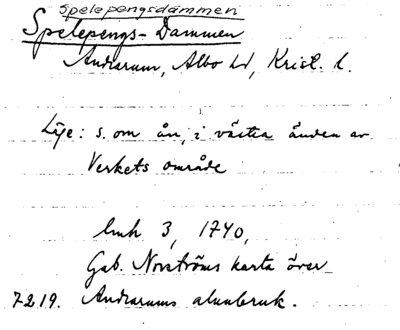 Spelepengsdammen
Spelepengs-Dammen
Andrarum, Albo hd, Krist. l.
Läge: s. om ån, i västra änden av
Verkets område
lmh 3, 1740,
Gab. Norströms karta över
7219. Andrarums alunbruk.